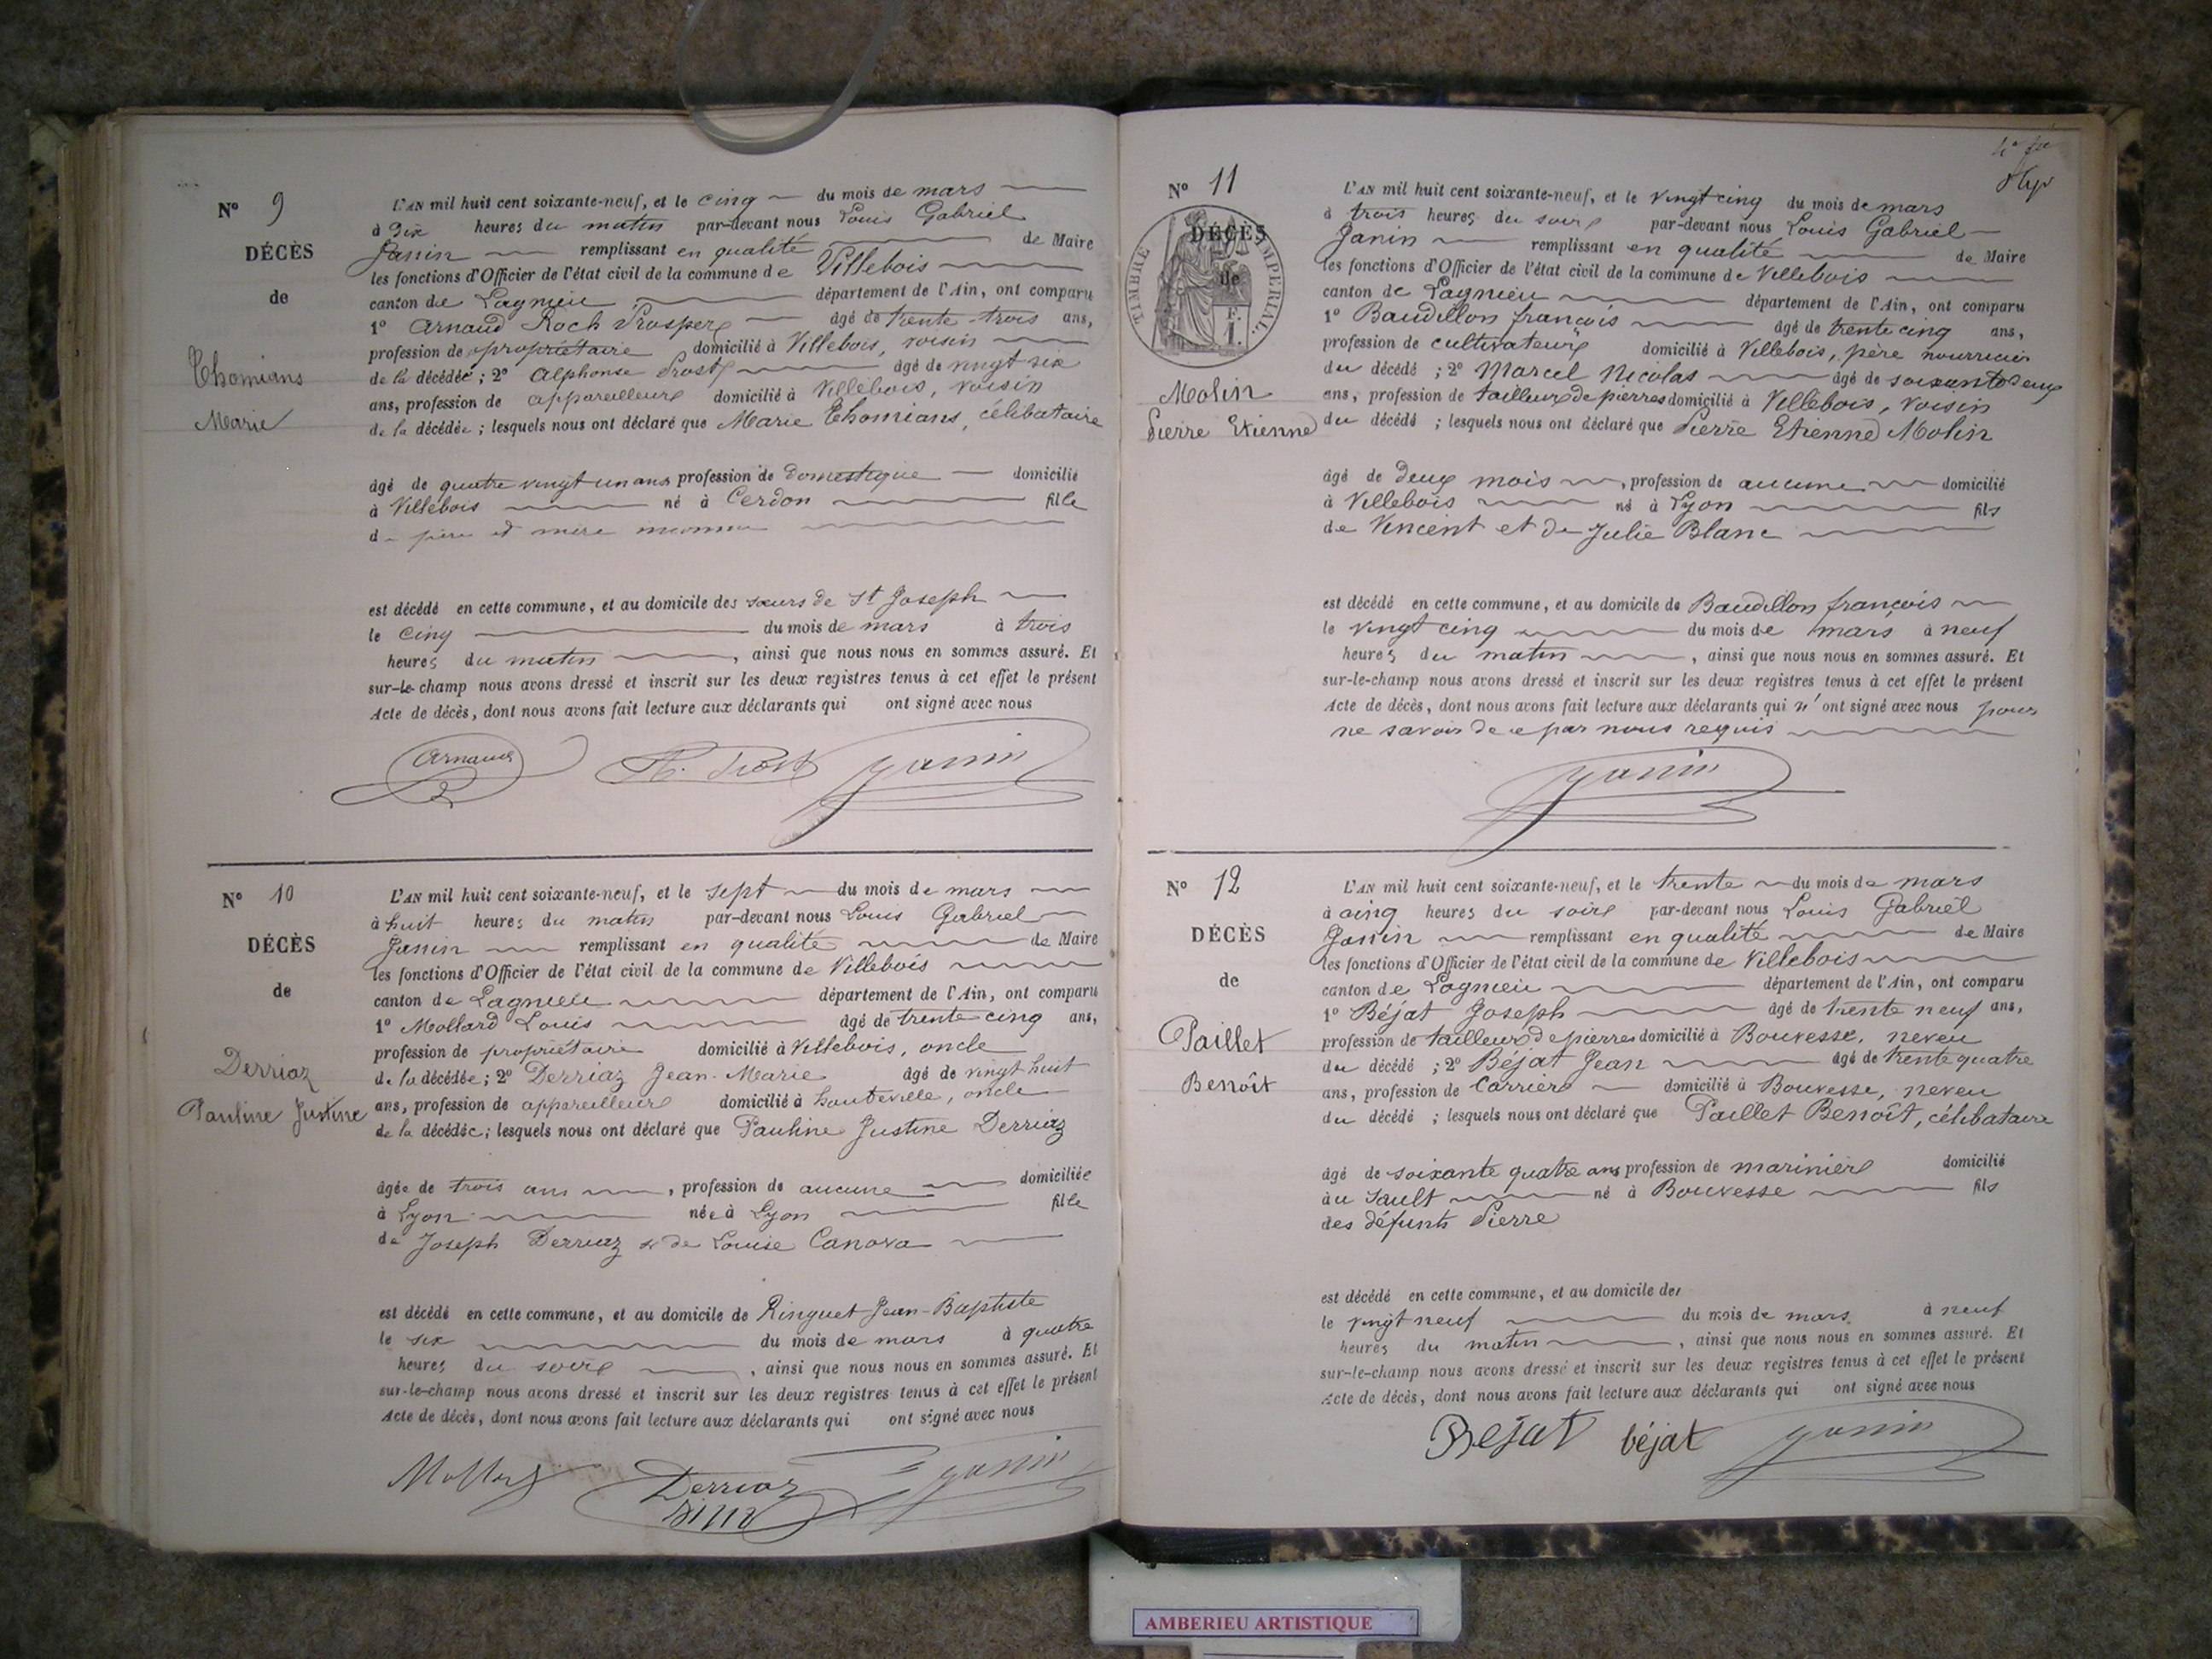 N° 9
DÉCÈS
de
Thomians
Marie
L'AN mil huit cent soixante-neuf, et le cinq du mois de mars
à dix heures du matin par-devant nous Louis Gabriel
Janin remplissant en qualité de Maire
les fonctions d'Officier de l'état civil de la commune de Villebois
canton de Lagnieu département de l'Ain, ont comparu
1° Arnaud Roch Prosper âgé de trente-trois ans,
profession de propriétaire domicilié à Villebois, voisin
de la décédée ; 2° Alphonse Trost âgé de vingt six
ans, profession de appareilleur domicilié à Villebois, voisin
de la décédée ; lesquels nous ont déclaré que Marie Thomians, célibataire
âgé de quatre vingt un ans profession de domestique domicilié
à Villebois né à Cerdon fille
de père et mère inconnu
est décédé en cette commune, et au domicile des sœurs de St Joseph
le cinq du mois de mars à trois
heures du matin, ainsi que nous nous en sommes assuré. Et
sur-le-champ nous avons dressé et inscrit sur les deux registres tenus à cet effet le présent
Acte de décès, dont nous avons fait lecture aux déclarants qui ont signé avec nous
Arnaud Janin
N° 10
DÉCÈS
de
Derriaz
Pauline Justine
L'AN mil huit cent soixante-neuf, et le sept du mois de mars
à huit heures du matin par-devant nous Louis Gabriel
Janin remplissant en qualité de Maire
les fonctions d'Officier de l'état civil de la commune de Villebois
canton de Lagnieu département de l'Ain, ont comparu
1° Mollard Louis âgé de trente cinq ans,
profession de propriétaire domicilié à Villebois, oncle
de la décédée ; 2° Derriaz Jean-Marie âgé de vingt huit
ans, profession de appareilleur domicilié à hauteville, oncle
de la décédée ; lesquels nous ont déclaré que Pauline Justine Derriaz
âgée de trois ans, profession de aucune domiciliée
à Lyon née à Lyon fille
de Joseph Derriaz & de Louise Canova
est décédé en cette commune, et au domicile de Ringuet Jean-Baptiste
le six du mois de mars à quatre
heures du soir, ainsi que nous nous en sommes assuré. Et
sur-le-champ nous avons dressé et inscrit sur les deux registres tenus à cet effet le présent
Acte de décès, dont nous avons fait lecture aux déclarants qui ont signé avec nous
Mollard Derriaz Janin
N° 11
DÉCÈS
de
TIMBRE IMPERIAL
F. 1.
Molin
Pierre Etienne
L'AN mil huit cent soixante-neuf, et le vingt cinq du mois de mars
à trois heures du soir par-devant nous Louis Gabriel
Janin remplissant en qualité de Maire
les fonctions d'Officier de l'état civil de la commune de Villebois
canton de Lagnieu département de l'Ain, ont comparu
1° Baudillon françois âgé de trente cinq ans,
profession de cultivateur domicilié à Villebois, père nourricier
du décédé ; 2° Marcel Nicolas âgé de soixante deux
ans, profession de tailleur de pierres domicilié à Villebois, voisin
du décédé ; lesquels nous ont déclaré que Pierre Etienne Molin
âgé de deux mois, profession de aucune domicilié
à Villebois né à Lyon fils
de Vincent et de Julie Blanc
est décédé en cette commune, et au domicile de Baudillon françois
le vingt cinq du mois de mars à neuf
heures du matin, ainsi que nous nous en sommes assuré. Et
sur-le-champ nous avons dressé et inscrit sur les deux registres tenus à cet effet le présent
Acte de décès, dont nous avons fait lecture aux déclarants qui n'ont signé avec nous pour
ne savoir de ce par nous requis
Janin
N° 12
DÉCÈS
de
Paillet
Benoît
L'AN mil huit cent soixante-neuf, et le trente du mois de mars
à cinq heures du soir par-devant nous Louis Gabriel
Janin remplissant en qualité de Maire
les fonctions d'Officier de l'état civil de la commune de Villebois
canton de Lagnieu département de l'Ain, ont comparu
1° Béjat Joseph âgé de trente neuf ans,
profession de tailleur de pierres domicilié à Bouvesse, neveu
du décédé ; 2° Béjat Jean âgé de trente quatre
ans, profession de Carrier domicilié à Bouvesse, neveu
du décédé ; lesquels nous ont déclaré que Paillet Benoît, célibataire
âgé de soixante quatre ans profession de marinier domicilié
au Sault né à Bouvesse fils
des défunts Pierre
est décédé en cette commune, et au domicile des
le vingt neuf du mois de mars à neuf
heures du matin, ainsi que nous nous en sommes assuré. Et
sur-le-champ nous avons dressé et inscrit sur les deux registres tenus à cet effet le présent
Acte de décès, dont nous avons fait lecture aux déclarants qui ont signé avec nous
Bejat béjat Janin
AMBERIEU ARTISTIQUE